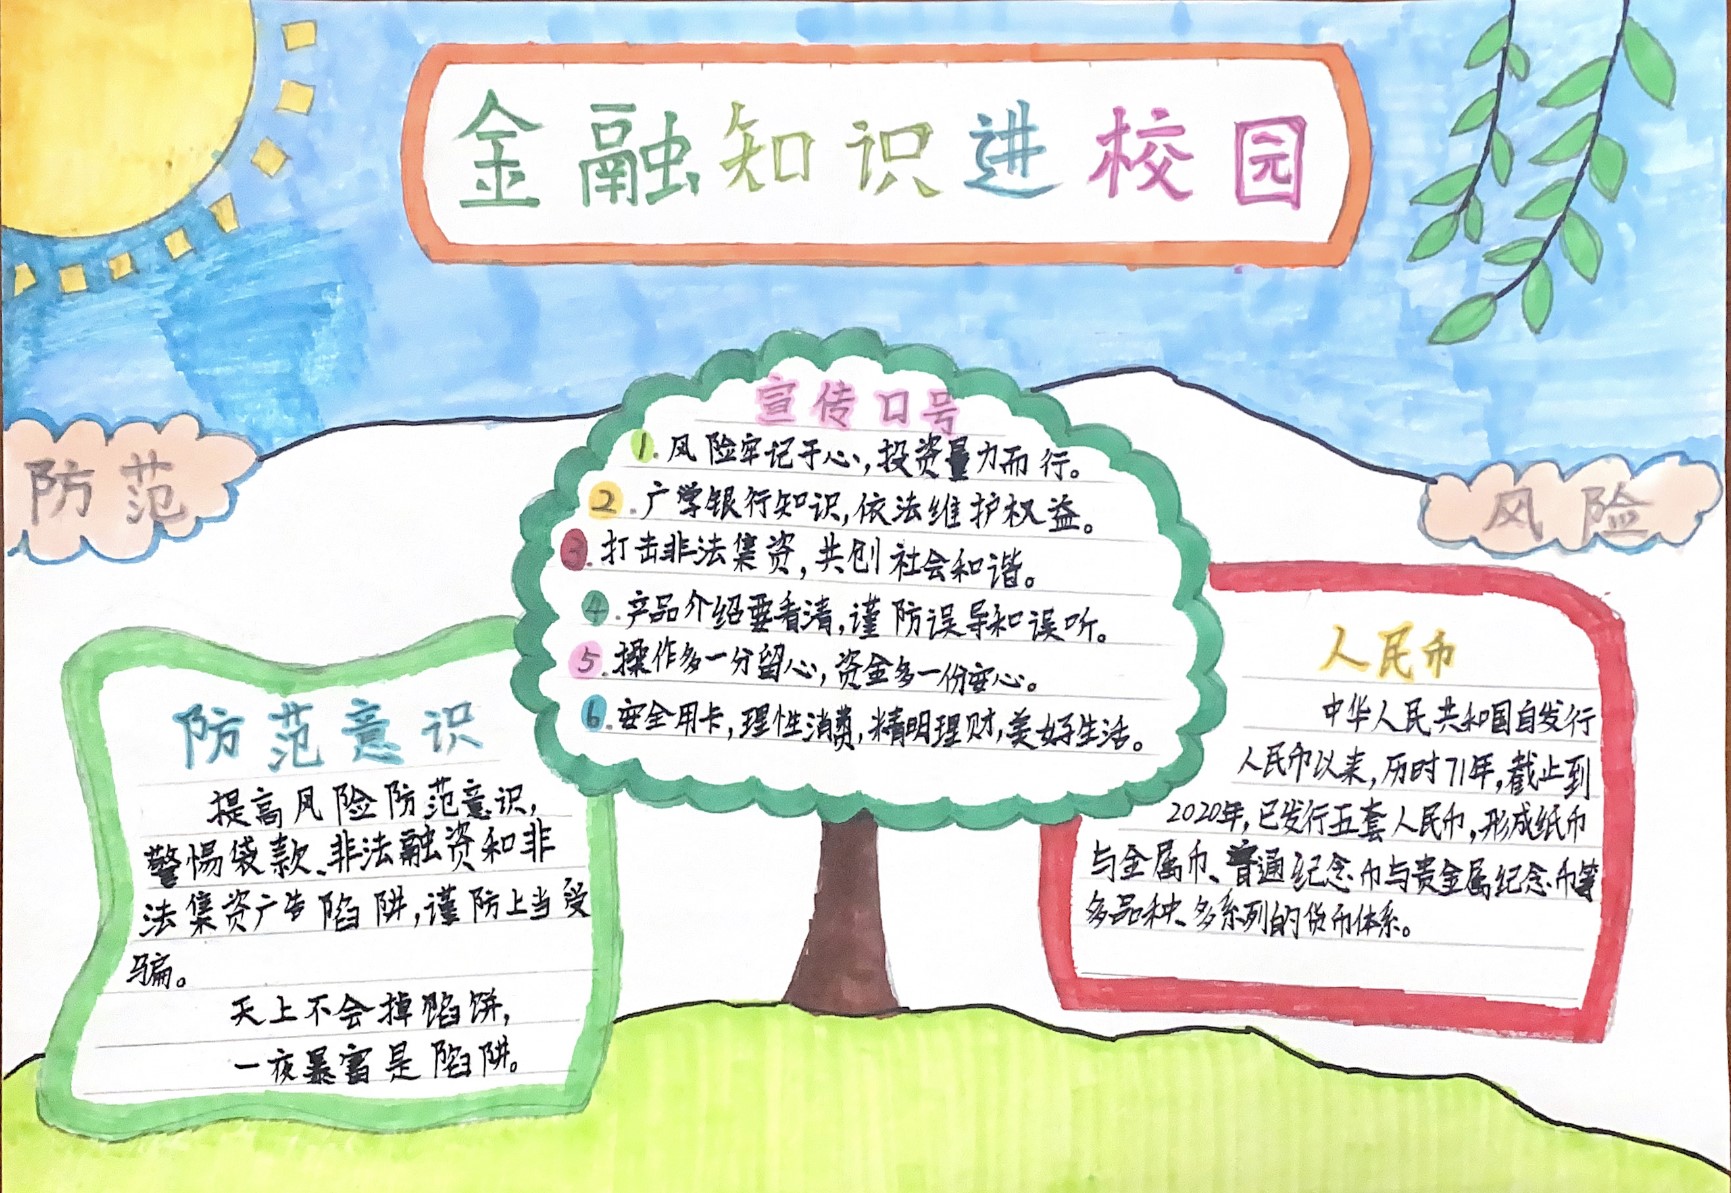 金融知识进校园
防范
风险
宣传口号
1.风险牢记于心,投资量力而行。
2.广学银行知识,依法维护权益。
3.打击非法集资,共创社会和谐。
4.产品介绍要看清,谨防误导和误听。
5.操作多一分留心,资金多一份安心。
6.安全用卡,理性消费,精明理财,美好生活。
防范意识
提高风险防范意识,
警惕袋款、非法融资和非
法集资广告陷阱,谨防上当受
骗。
天上不会掉馅饼,
一夜暴富是陷阱。
人民币
中华人民共和国自发行
人民币以来,历时71年,截止到
2020年,已发行五套人民币,形成纸币
与金属币、普通纪念币与贵金属纪念币等
多品种、多系列的货币体系。